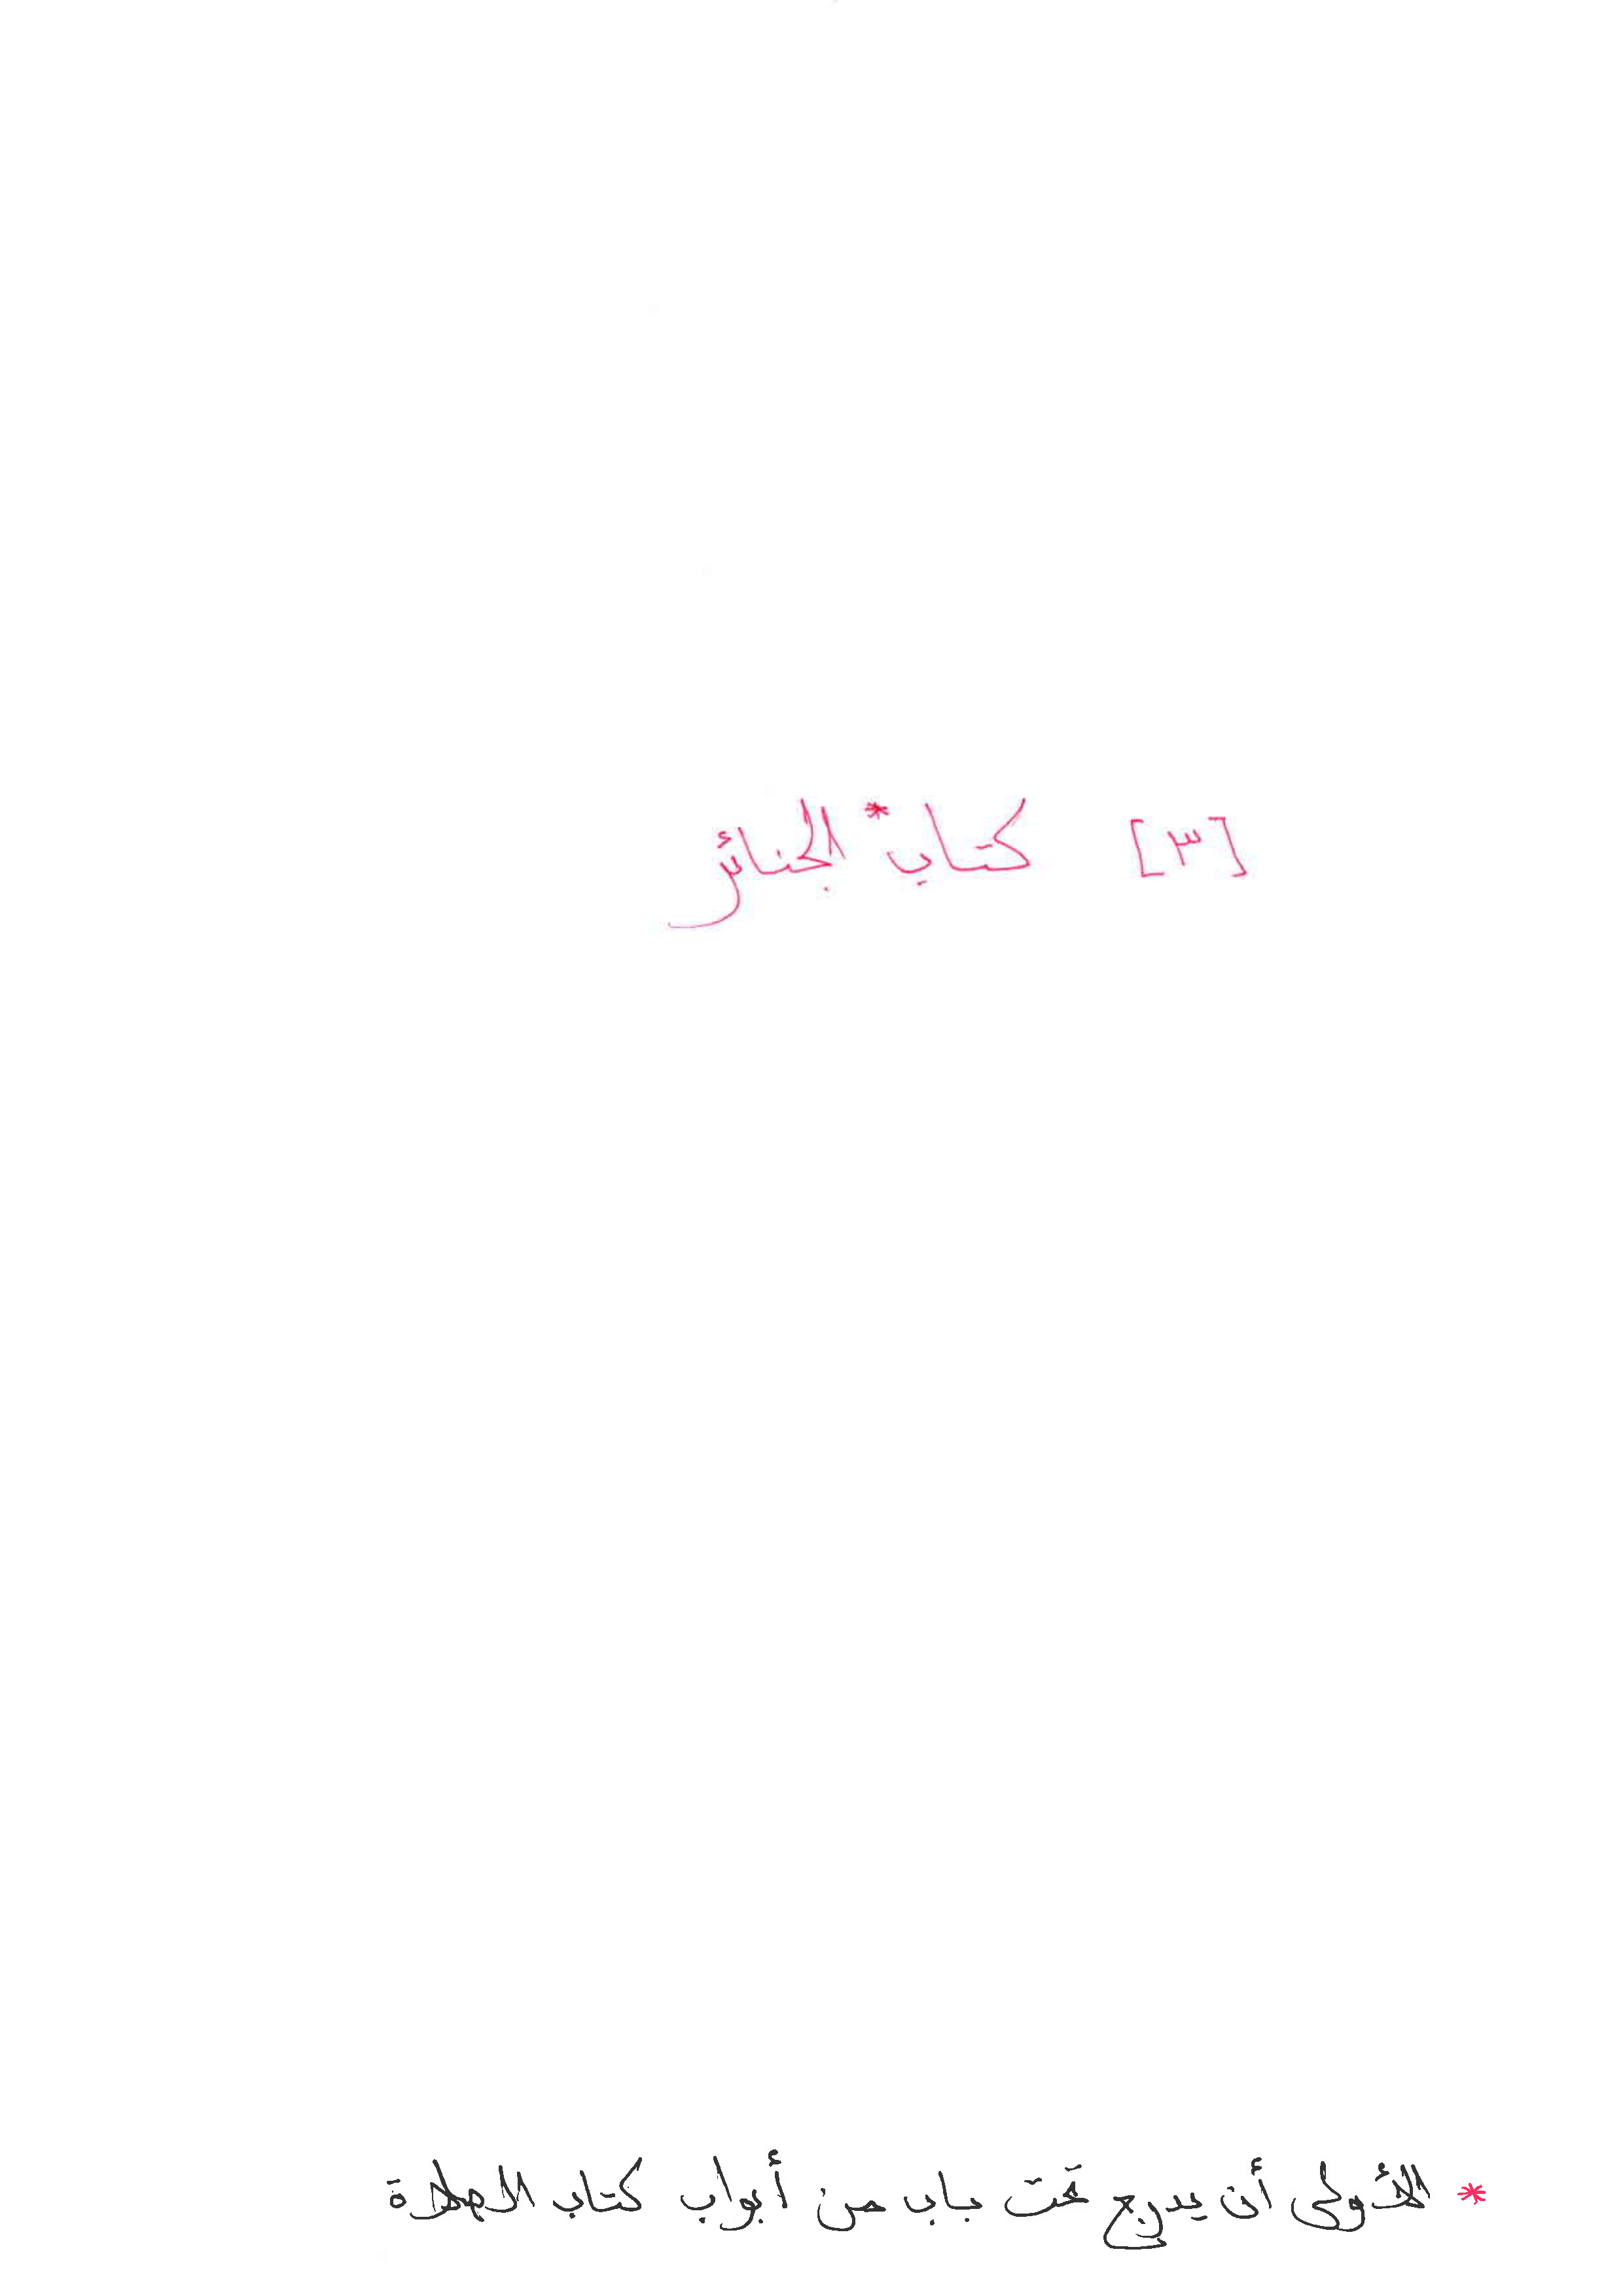 [٣] كتاب* الجنائز
* الأولى أن يدرج تحت باب من أبواب كتاب الصلاة